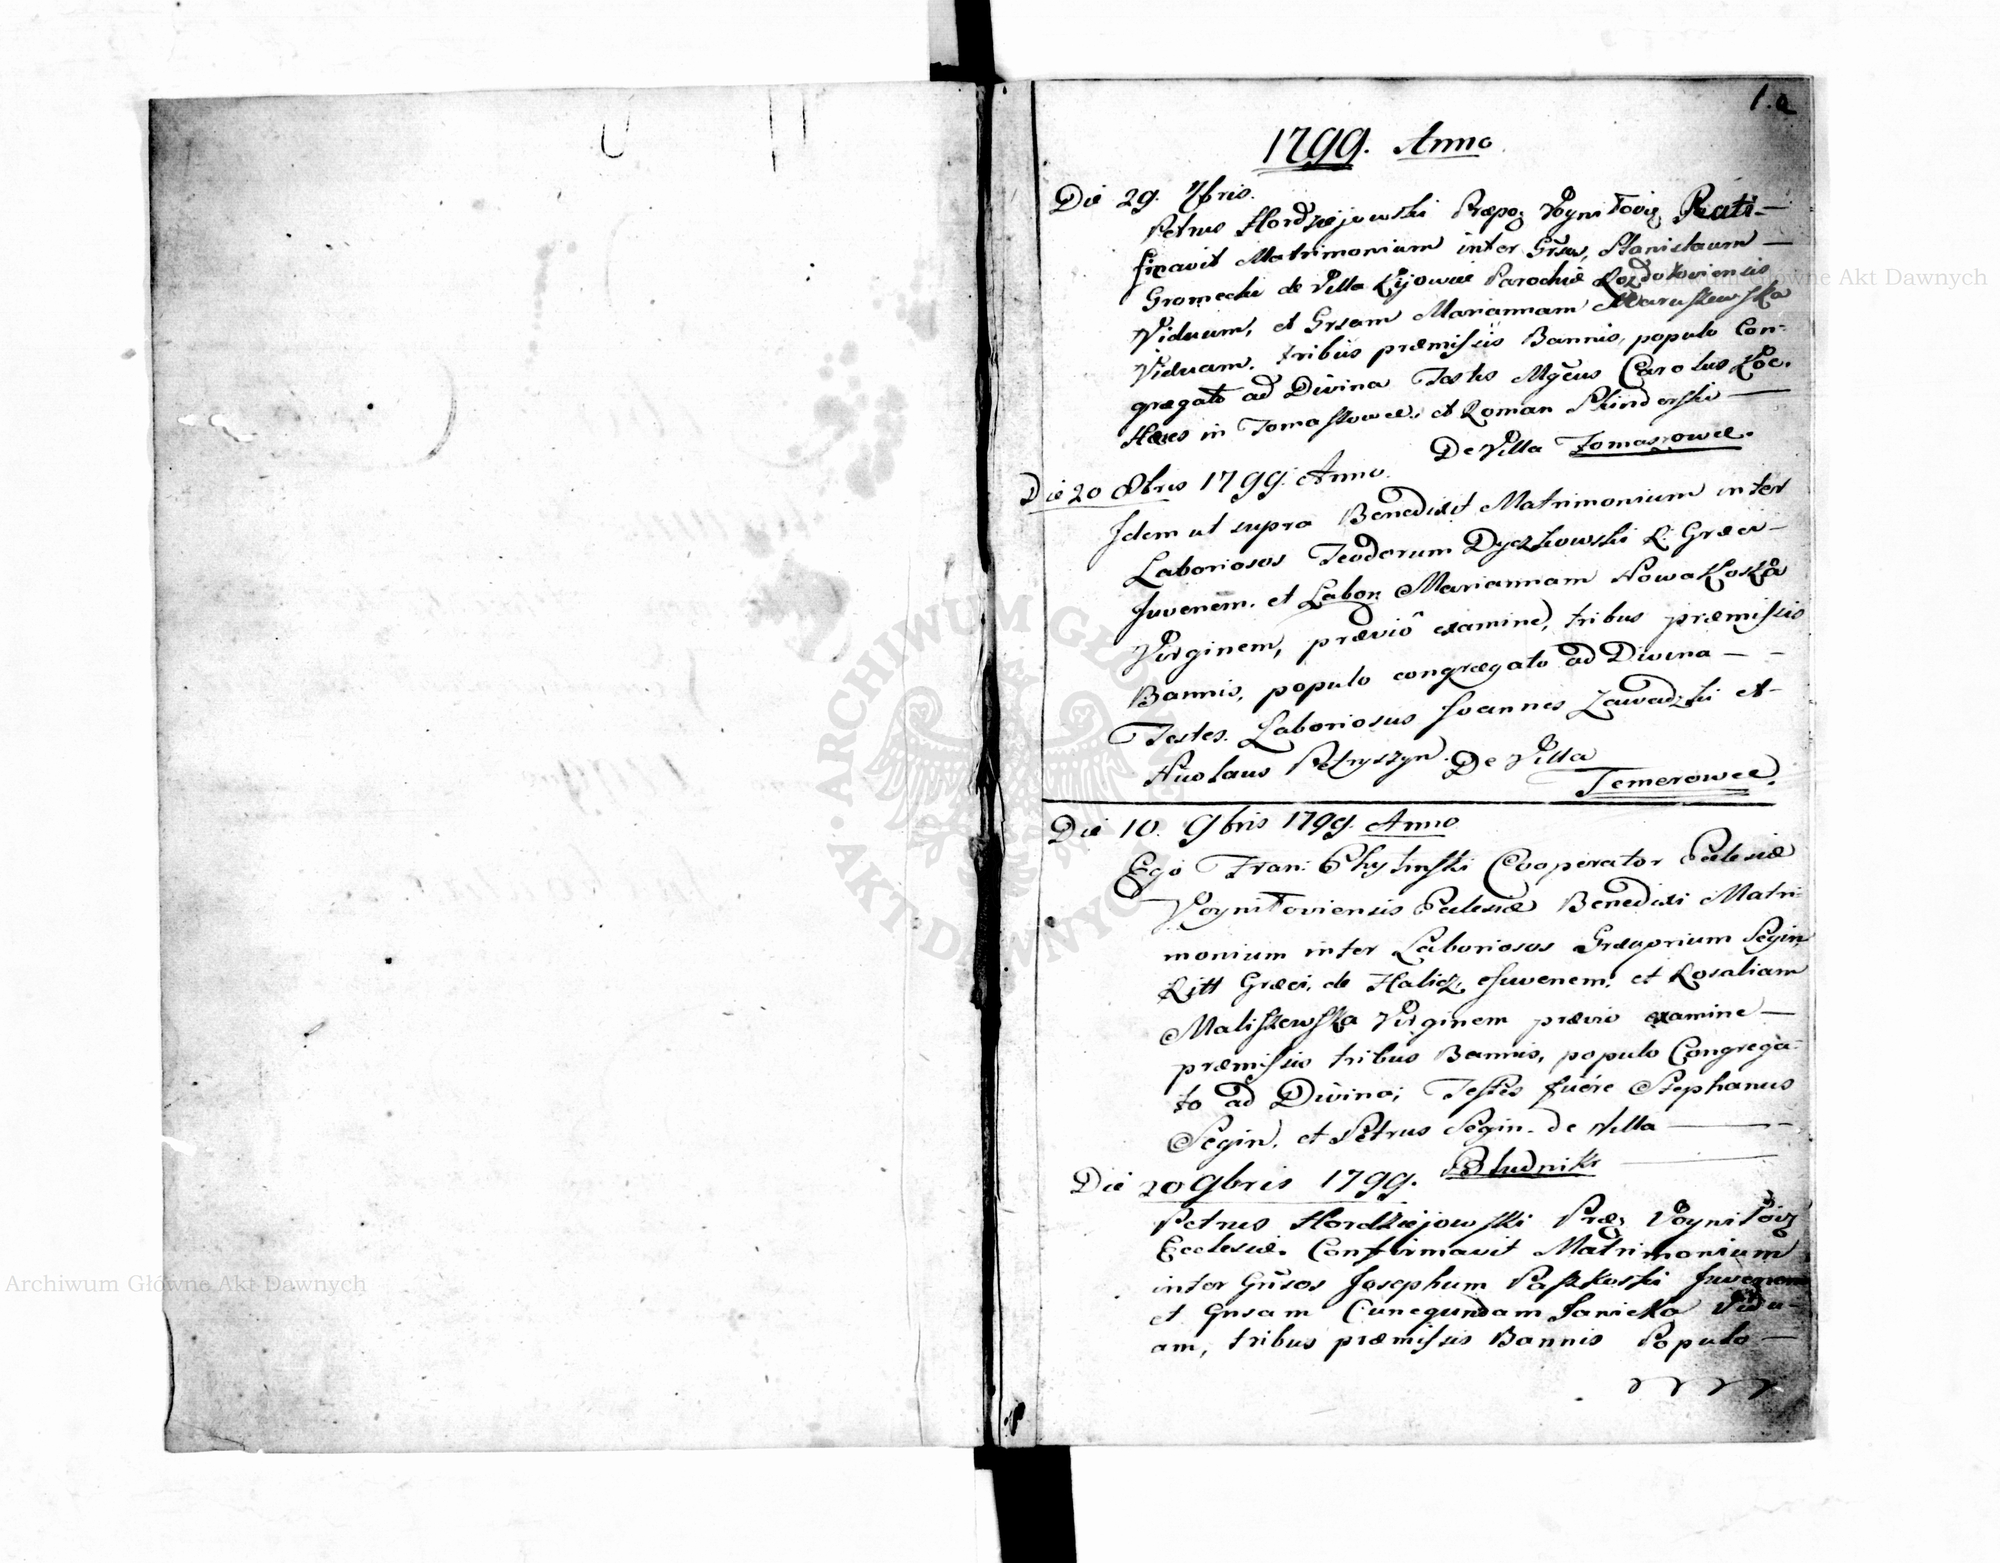 1.a
1799. Anno
Die 29. 7bris.
Petrus Hordziejowski Præpoz Woyniłowiz Rati-
ficavit Matrimonium inter Grsus, Stanislaum
Gromecki de Villa Kijowce Parochiæ Rozdołoviensis
Viduum, et Grsam Mariannam Maruszewska
Viduam. tribus præmissis Bannis, populo Con-
gregato ad Divina Testes Mgcus Carolus
Hæres in Tomaszowce. et Roman
De Villa Tomaszowce.
Die 20 8bris 1799. Anno.
Idem ut supra Benedixit Matrimonium inter
Laboriosos Teodorum Dyczkowski R: Græci-
Juvenem. et Labor: Mariannam Nowakoską
Virginem, præviô examine, tribus præmissis
Bannis, populo congregato ad Divina
Testes. Laboriosus Joannes Zawadzki et
Nicolaus Petryszyn. De Villa
Temerowce.
Die 10. 9bris 1799. Anno
Ego Fran: Cooperator Eclesiæ
Woyniłoviensis Eclesiæ Benedixi Matri-
monium inter Laboriosos GræGorium Segin,
Ritt Græci. de Halicz, Juvenem. et Rosaliam
Maliszewska Virginem prævio examine
præmissis tribus Bannis, populo Congrega-
to ad Divina; Testes fuére Stephanus
Segin, et Petrus Segin. de Villa
Bludniki
Die 20 9bris 1799.
Petrus Hordziejowski Præz Woyniłowiz
Ecclesiæ. Confirmavit Matrimonium
inter Gnsos Josephum Paszkoski Juvenem
et Gnsam Cunegundam Janicka Vidu-
am, tribus præmissis Bannis Populo
ARCHIWUM GŁÓWNE AKT DAWNYCH
Archiwum Główne Akt Dawnych
Archiwum Główne Akt Dawnych